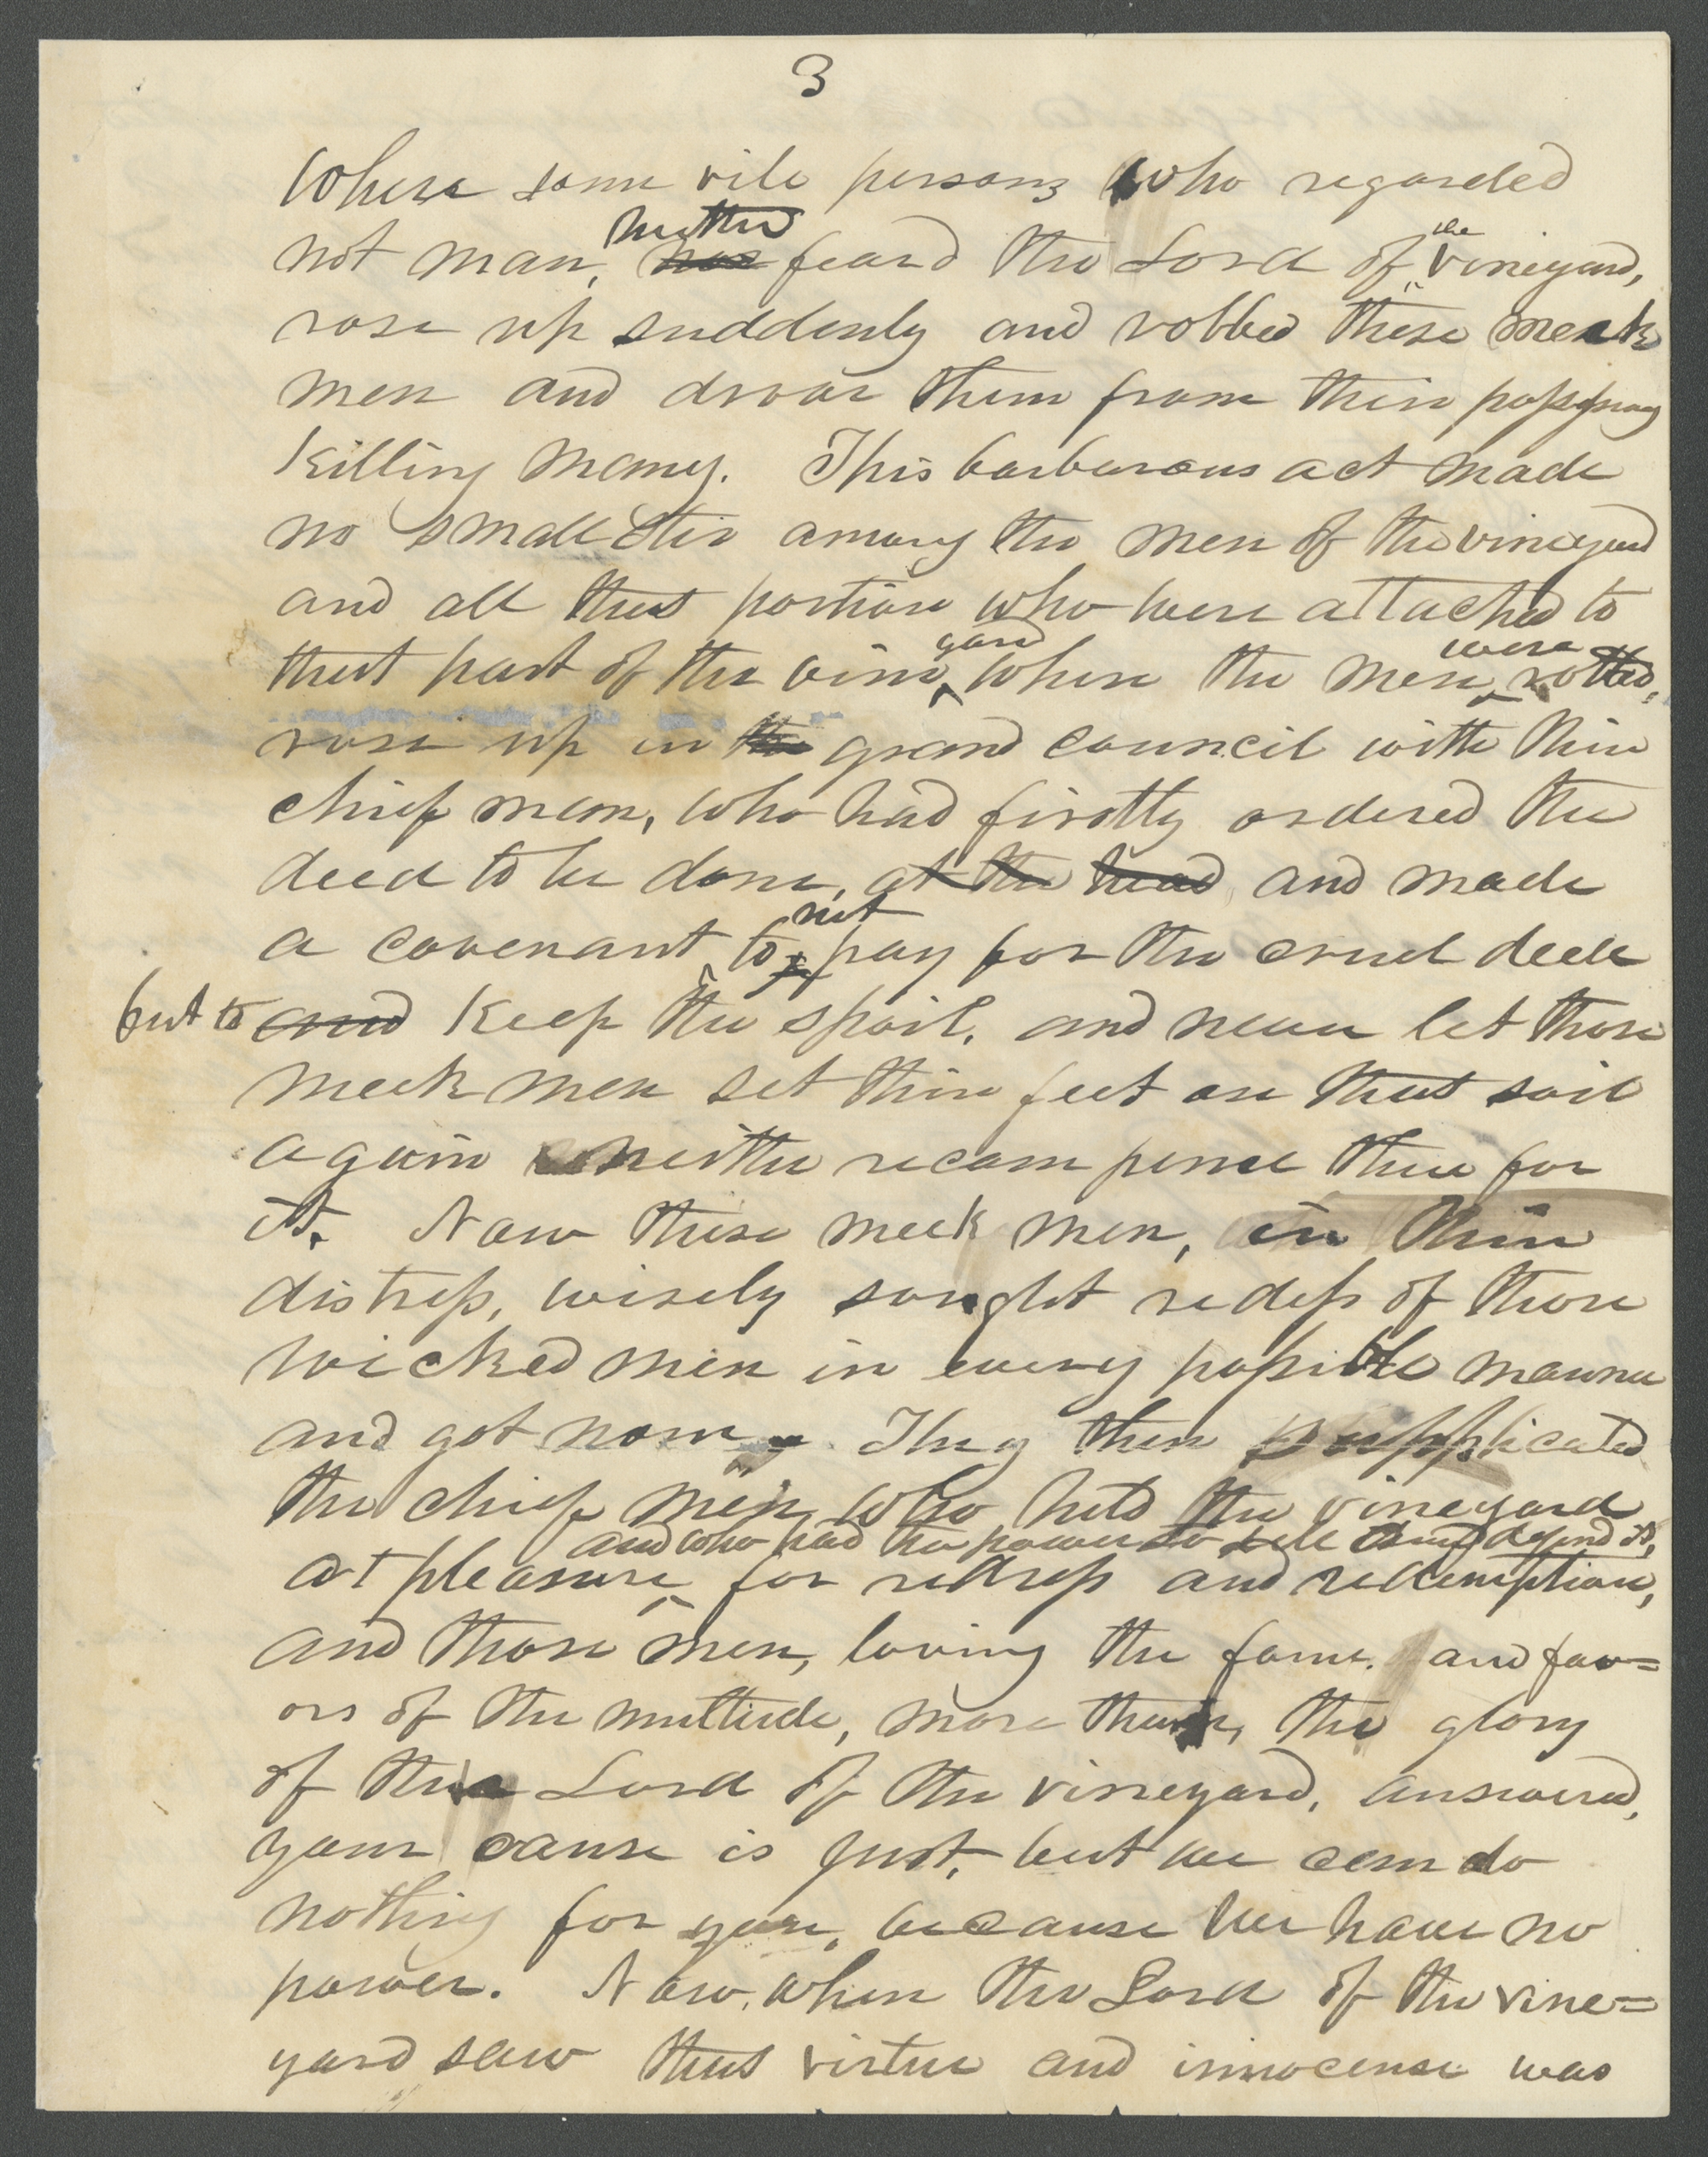 3
Where some vile persons who regarded
neither
not man, nor feard the Lord of the vineyard,
rose up suddenly and robbed these meek
men and drove them from their possessions
killing many. This barbarous act made
no small stir among the men of the vineyard
and all that portion who were attached to
that part of the vineyard where the men were robbed,
rose up in the grand council with their
chief man, who had firstly ordered the
deed to be done, at the head and made
a covenant, to not pay for the cruel deed
but to and keep the spoil, and never let those
meek men set their feet on that soil
again neither recompense them for
it. Now these meek men, in their
distress, wisely sought redess of those
wicked men in every possible manner
and got none. They then supplicated
the chief men, who held the vineyard
and who had the power to sell and defend it,
at pleasure for redress and redemption,
and those men, loving the fame and fav=
ors of the multitude, more than, the glory
of the Lord of the vineyard, answered,
your cause is just, but we can do
nothing for you, because we have no
power. Now, when the Lord of the vine=
yard saw that virtue and innocense was